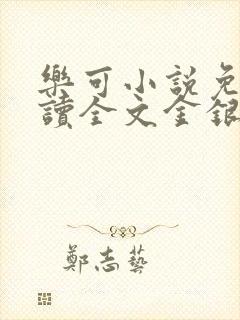 樂可小說免
讀全文金銀
鄭志藝